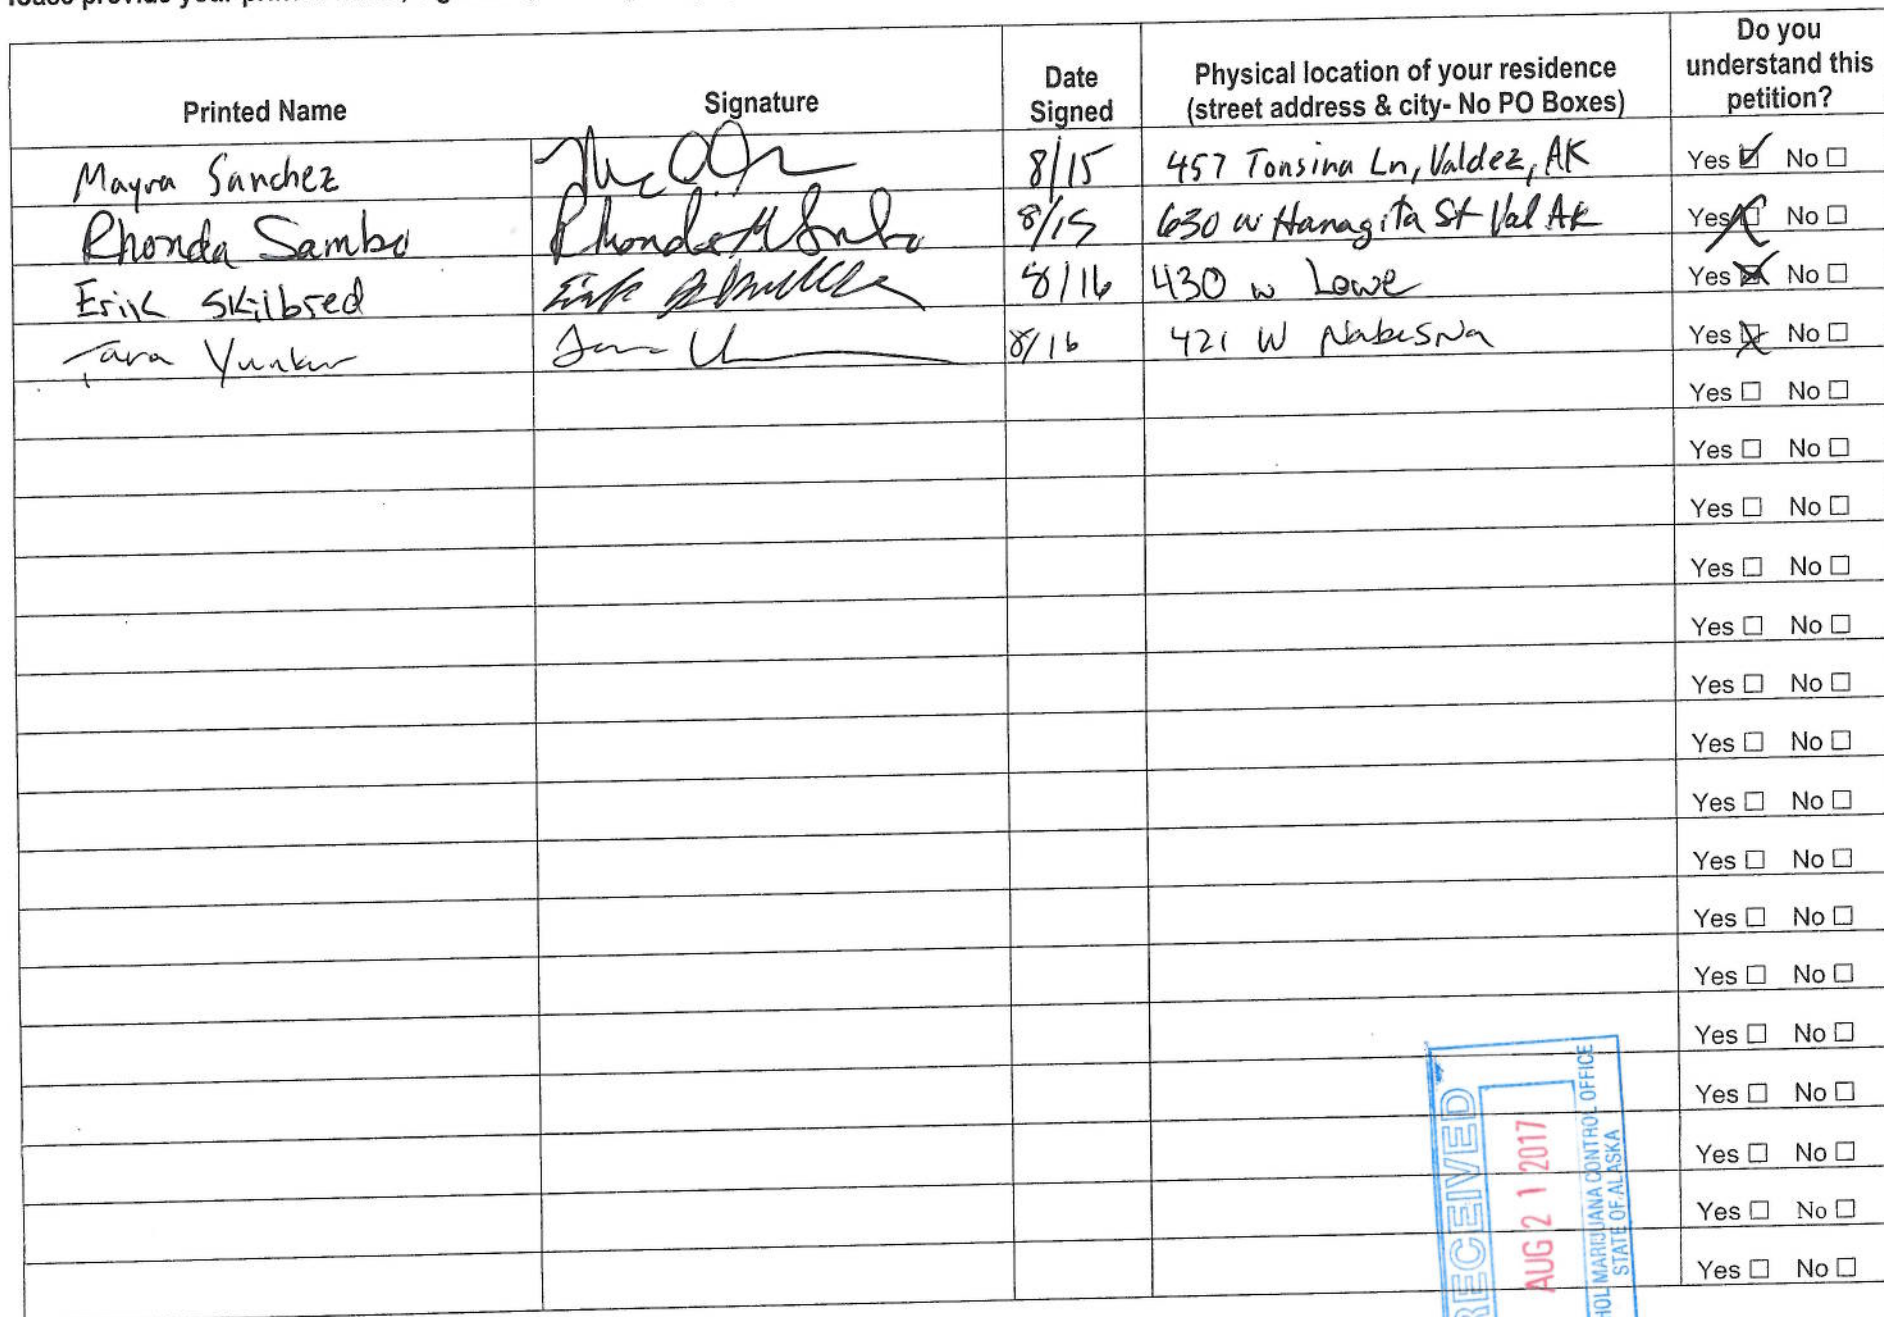 Printed Name Signature Date Signed Physical location of your residence (street address & city- No PO Boxes) Do you understand this petition?
Mayra Sanchez 8/15 457 Tonsina Ln, Valdez, AK Yes No
Rhonda Sambo Rhonda M Sambo 8/15 630 W Hanagita St Val AK Yes No
Erik Skilbred Erik 8/16 430 W Lowe Yes No
Tara Yunker 8/16 421 W Nabesna Yes No
Yes No
Yes No
Yes No
Yes No
Yes No
Yes No
Yes No
Yes No
Yes No
Yes No
Yes No
Yes No
Yes No
Yes No
Yes No
Yes No
RECEIVED
AUG 21 2017
MARIJUANA CONTROL OFFICE
STATE OF ALASKA